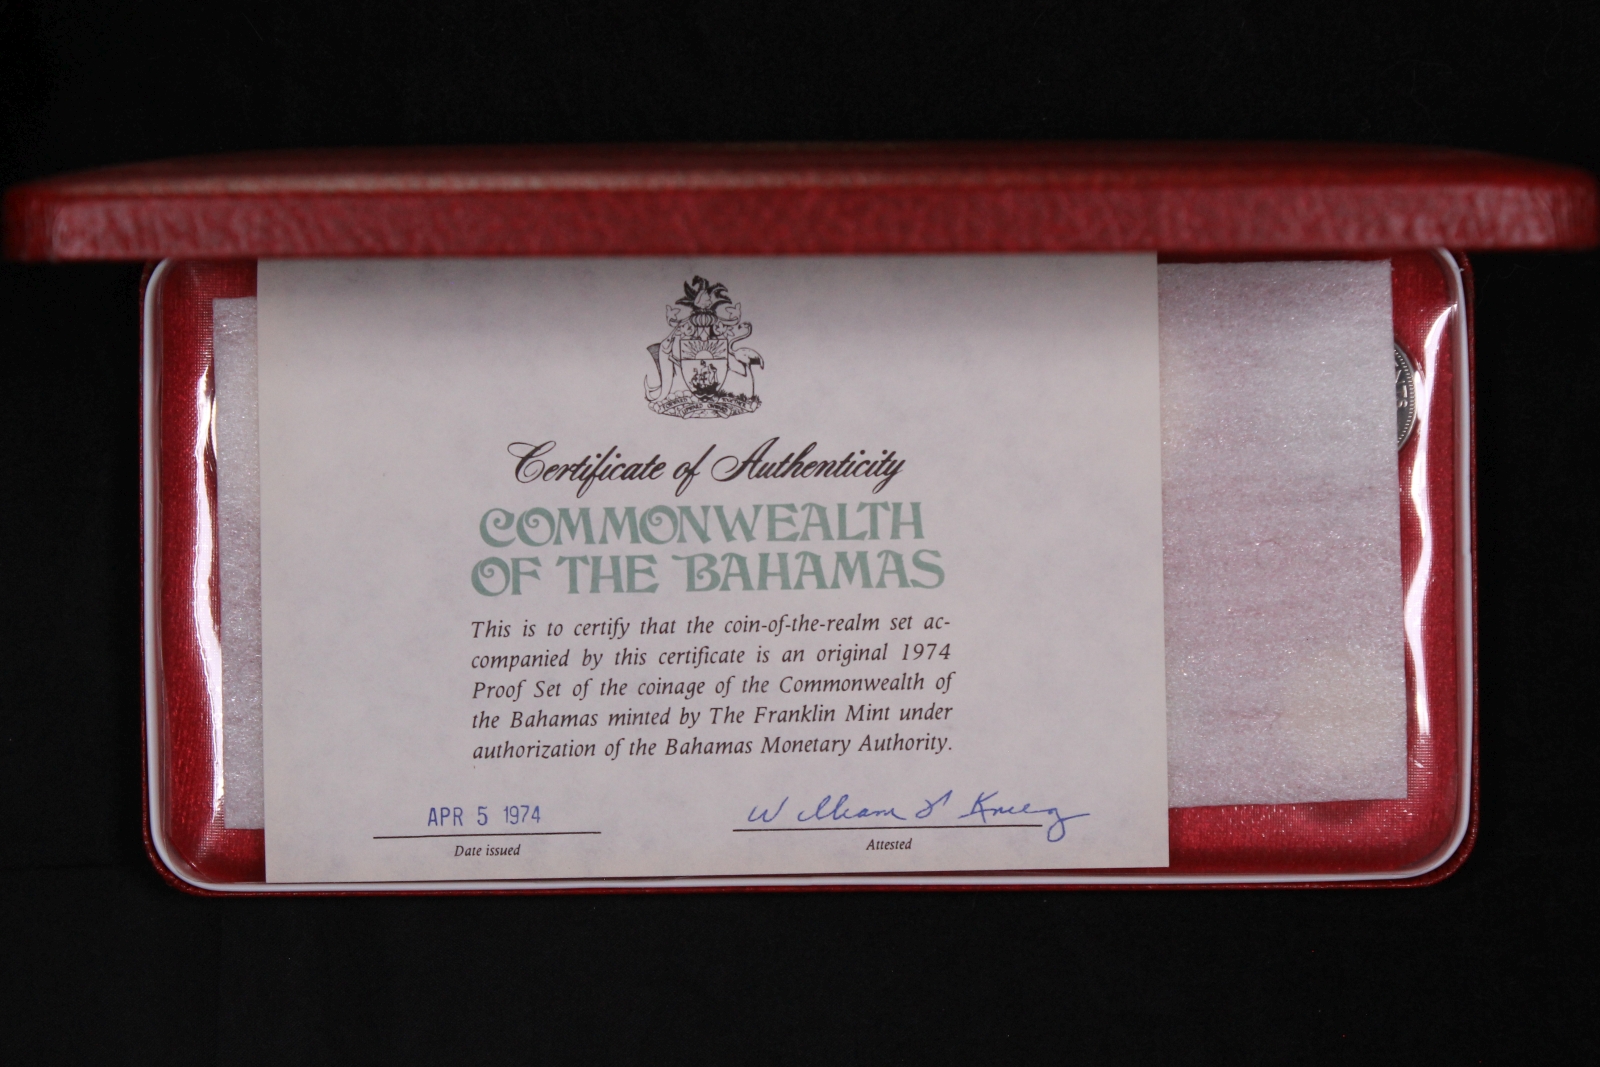 Certificate of Authenticity
COMMONWEALTH
OF THE BAHAMAS
This is to certify that the coin-of-the-realm set ac-
companied by this certificate is an original 1974
Proof Set of the coinage of the Commonwealth of
the Bahamas minted by The Franklin Mint under
authorization of the Bahamas Monetary Authority.
APR 5 1974
William
Date issued
Attested